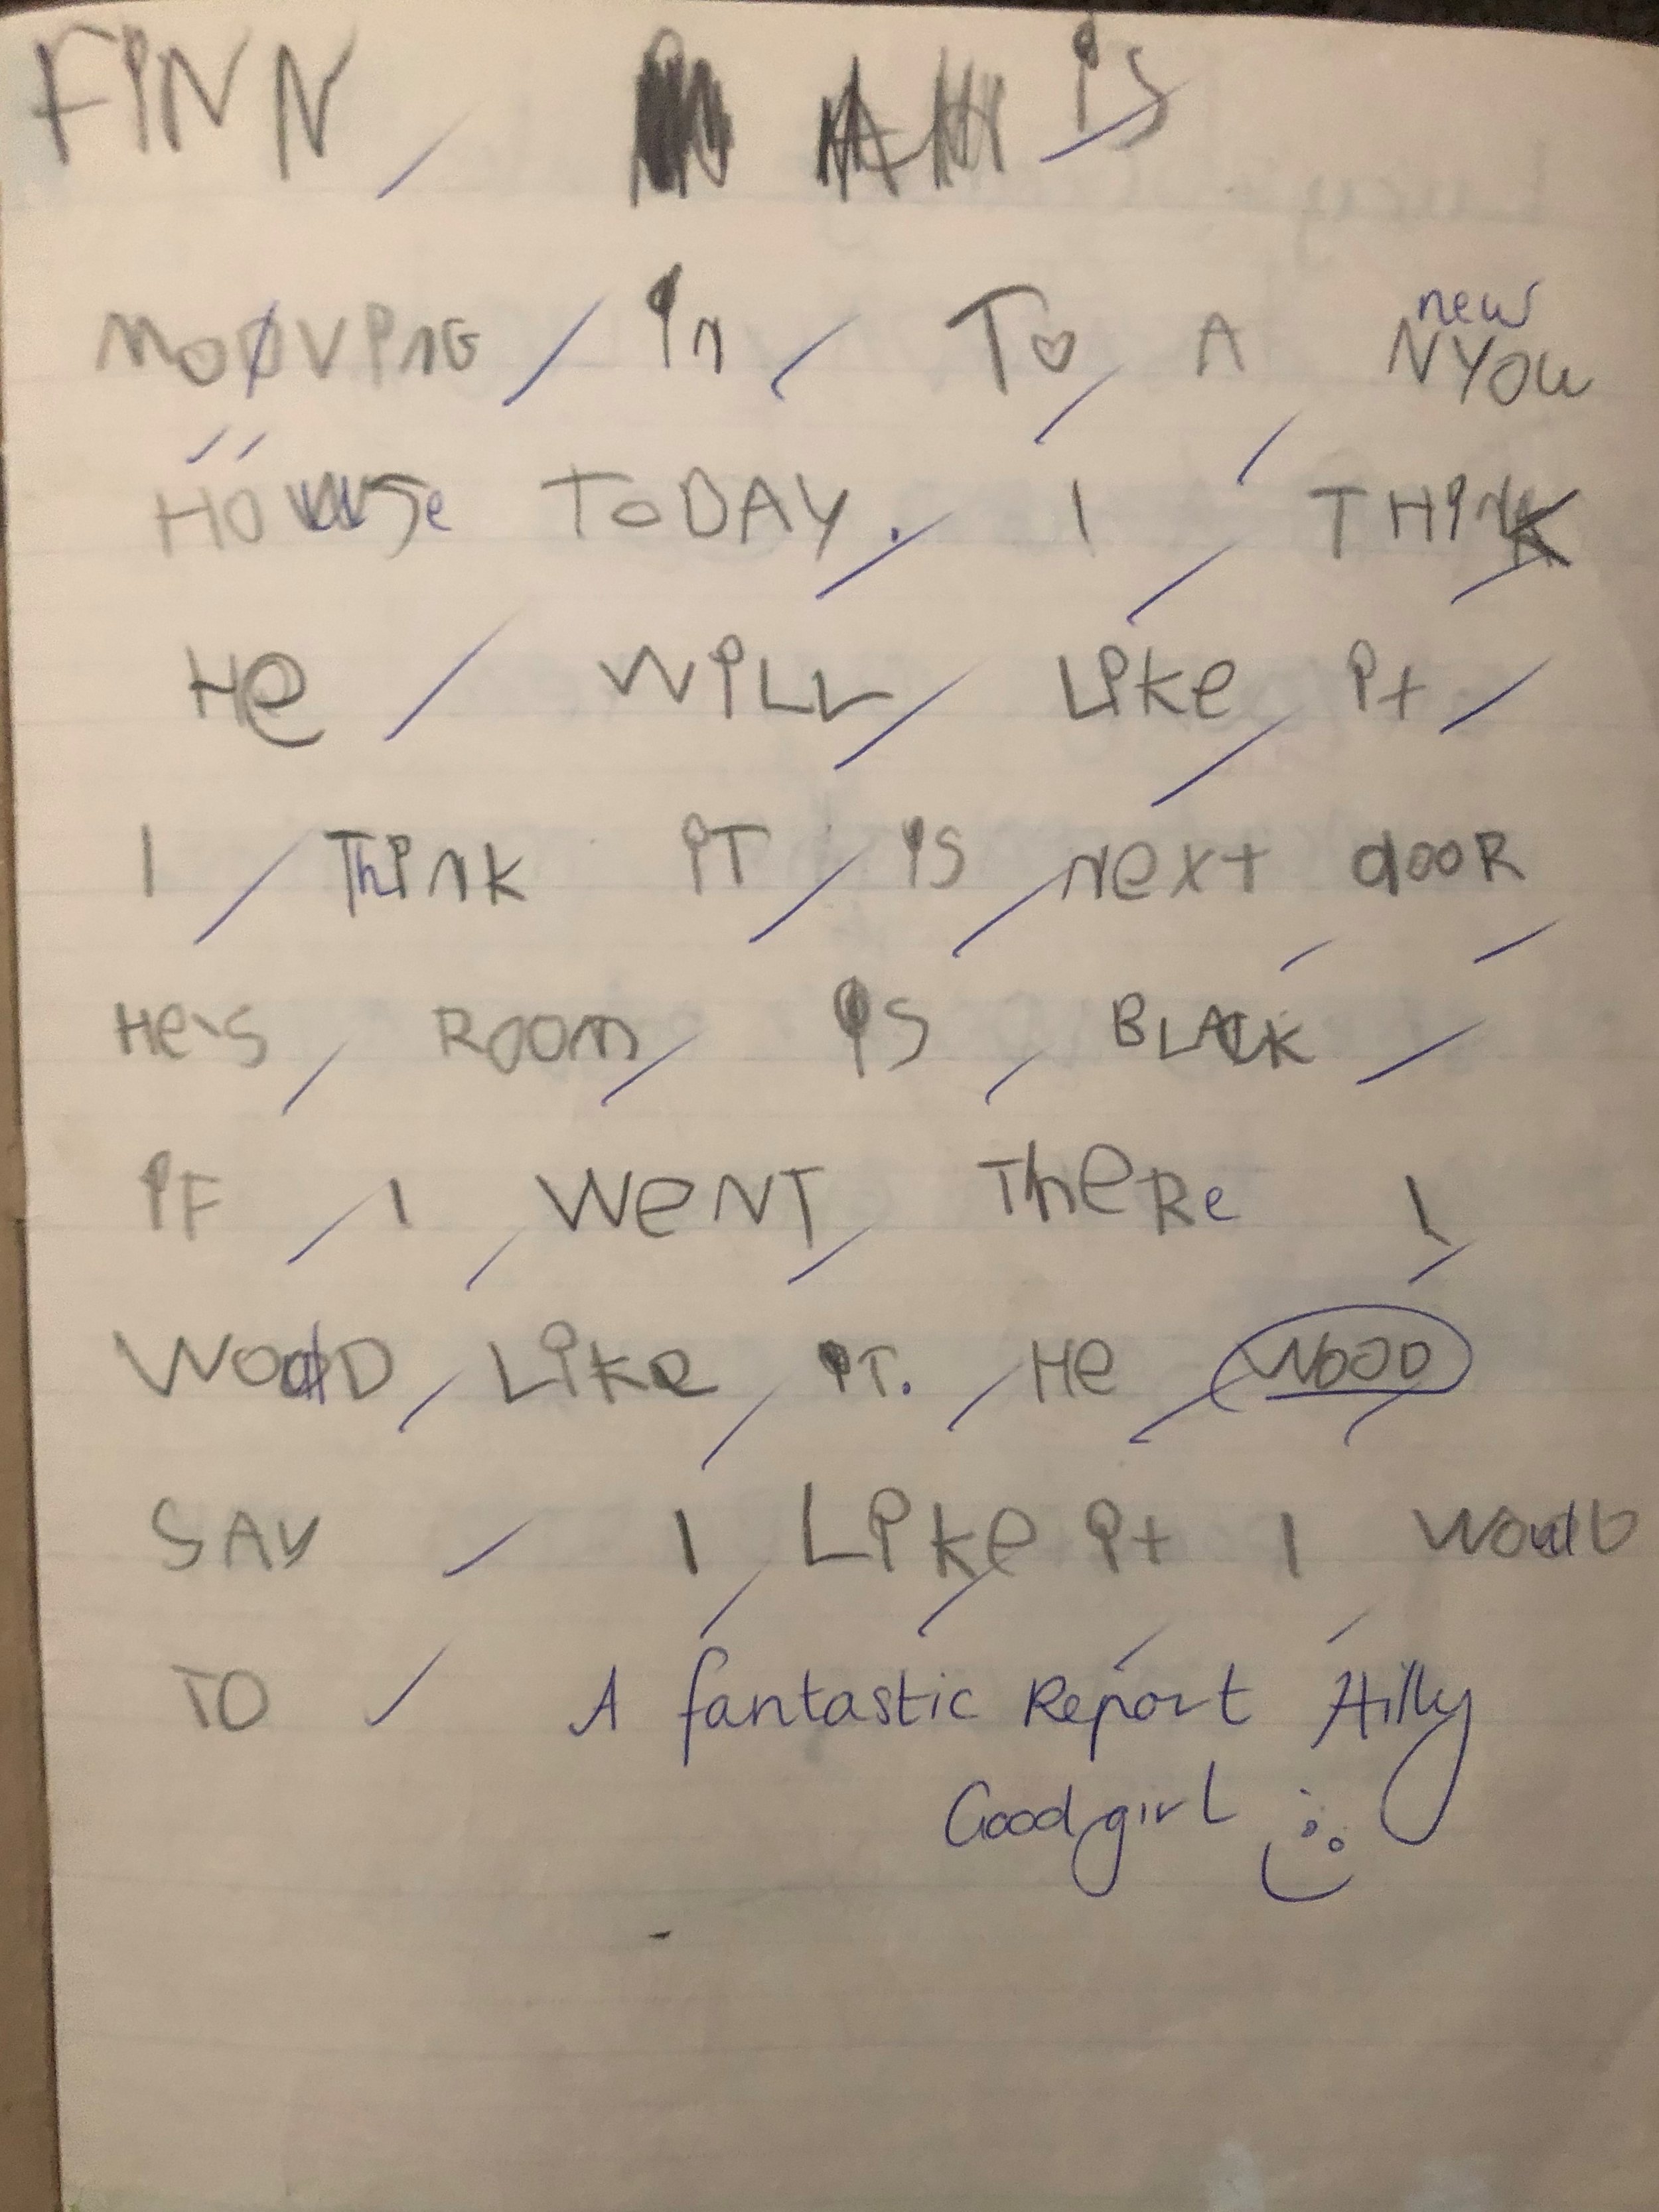 FINN is
new
MOOVING in To A NYOU
HOUSe ToDAY. I THINK
He WiLL Like it
I Think iT iS Next dooR
He's ROOM iS BLACK
iF I WeNT TheRe I
WOOD Like iT. He WOOD
SAY I Like it I Would
TO A fantastic Report Hilly
Good girl